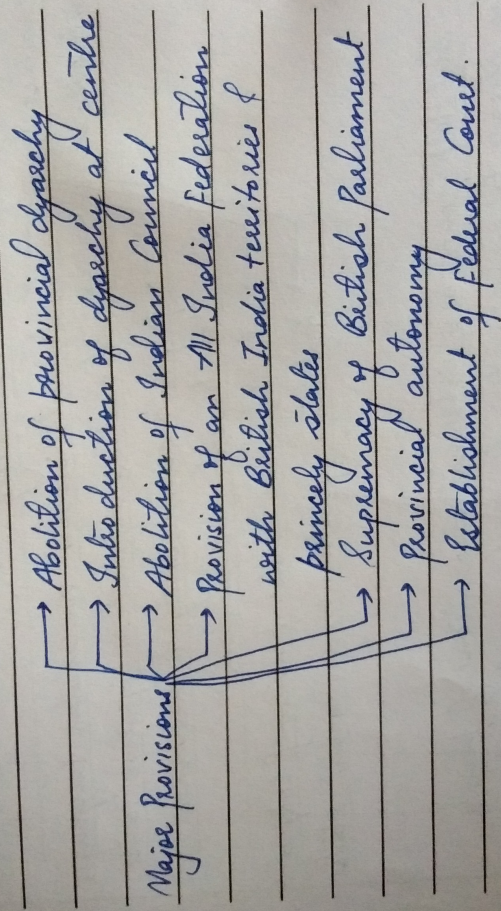 Abolition of provincial dyarchy
Introduction of dyarchy at centre
Major Provisions
Abolition of Indian Council
Provision of an All India Federation
with British India territories &
princely states
Supremacy of British Parliament
Provincial autonomy
Establishment of Federal Court.